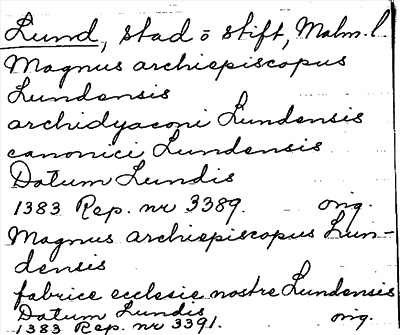 Lund, stad o stift, Malm. l.
Magnus archiepiscopus
Lundensis
archidyaconi Lundensis
canonici Lundensis
Datum Lundis
1383 Rep. nr 3389. orig.
Magnus archiepiscopus Lun-
densis
fabrice ecclesie nostre Lundensis
Datum Lundis
1383 Rep. nr 3391. orig.